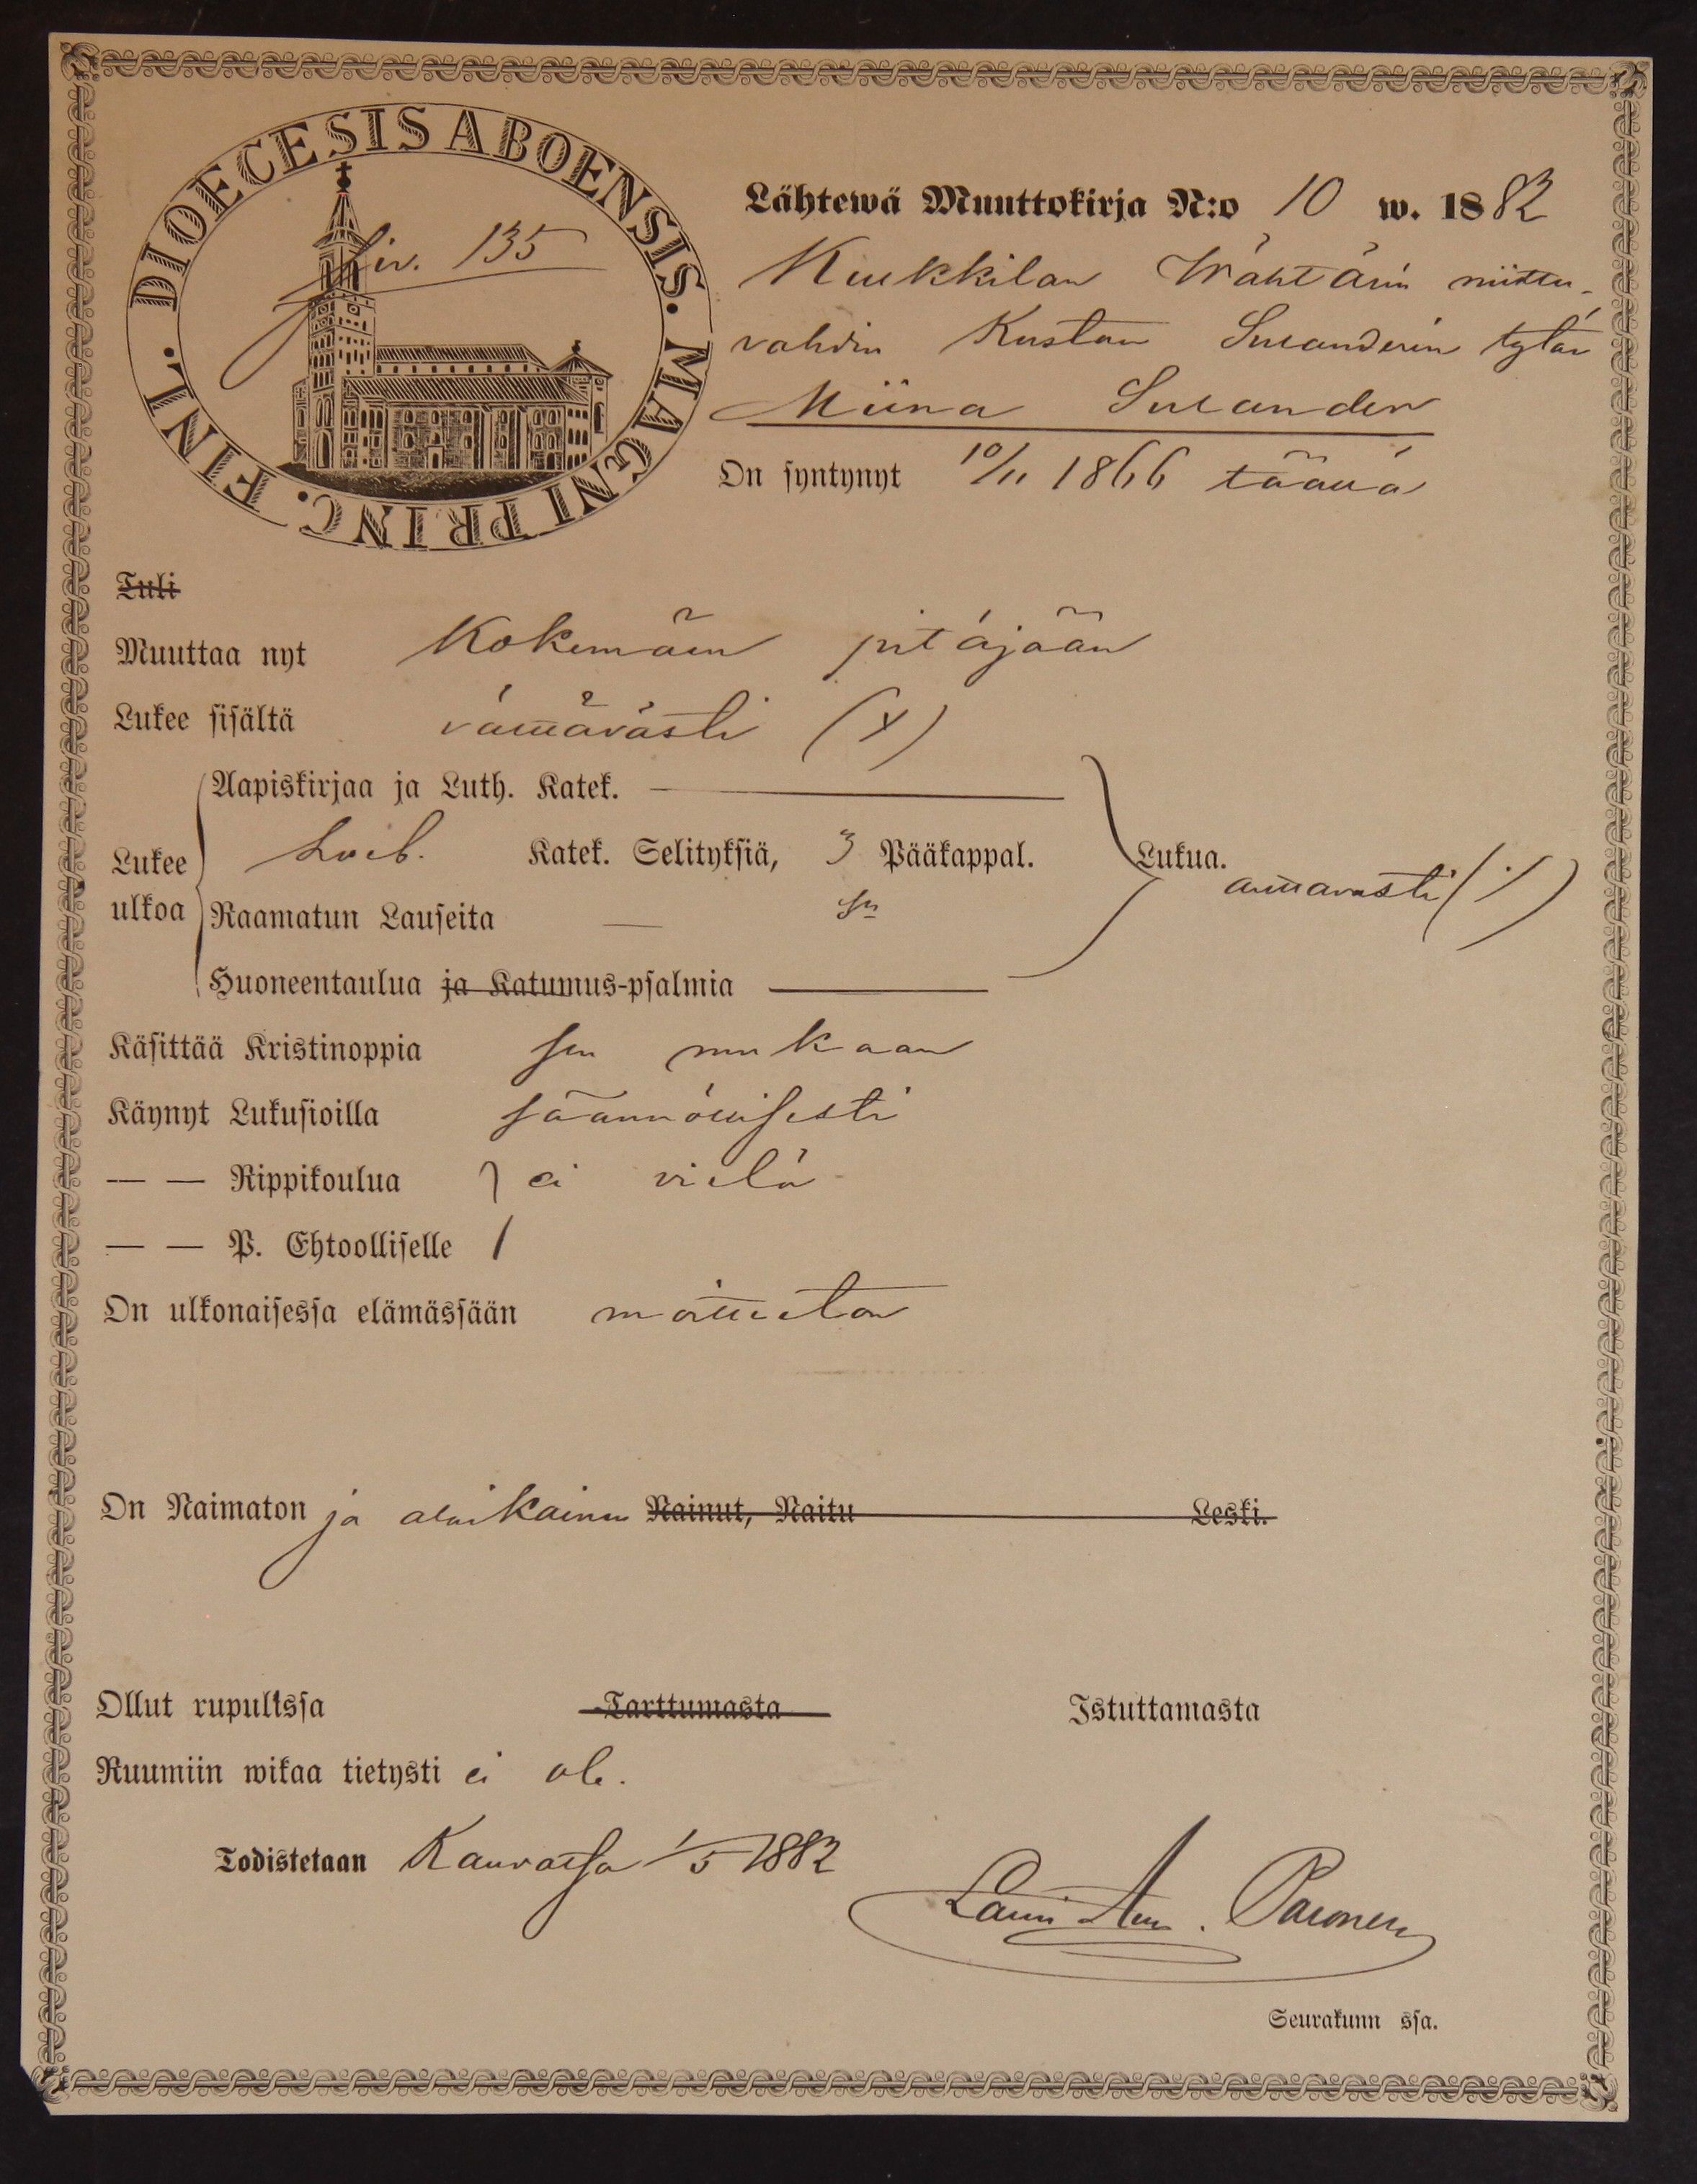 DIOECESIS ABOENSIS. MAGNI PRINC. FINL.
Siv. 135
Lähtewä Muuttokirja N:o 10 w. 1882
Kuukkilan Wähtärin niittu-
vahdin Kustan Sucanderin tytär
Miina Sucander
On syntynyt 10/11 1866 täällä
Tuli
Muuttaa nyt Kokemäen pitäjään
Lukee sisältä välttävästi (x)
Aapiskirjaa ja Luth. Katek.
Lukee ulkoa
Katek. Selityksiä, 3 Pääkappal.
Lukua.
auttavasti (/)
Raamatun Lauseita — sn
Huoneentaulua ja Katumus-psalmia
Käsittää Kristinoppia sen mukaan
Käynyt Lukusioilla säännöllisesti
— — Rippikoulua } ei vielä
— — P. Ehtoolliselle
On ulkonaisessa elämässään moitteeton
On Naimaton ja alaikäinen Nainut, Naitu Leski.
Ollut rupulissa Tarttumasta Istuttamasta
Ruumiin wikaa tietysti ei ole.
Todistetaan Kauvatsa 1/5 1882
Paronen
Seurakunn ssa.